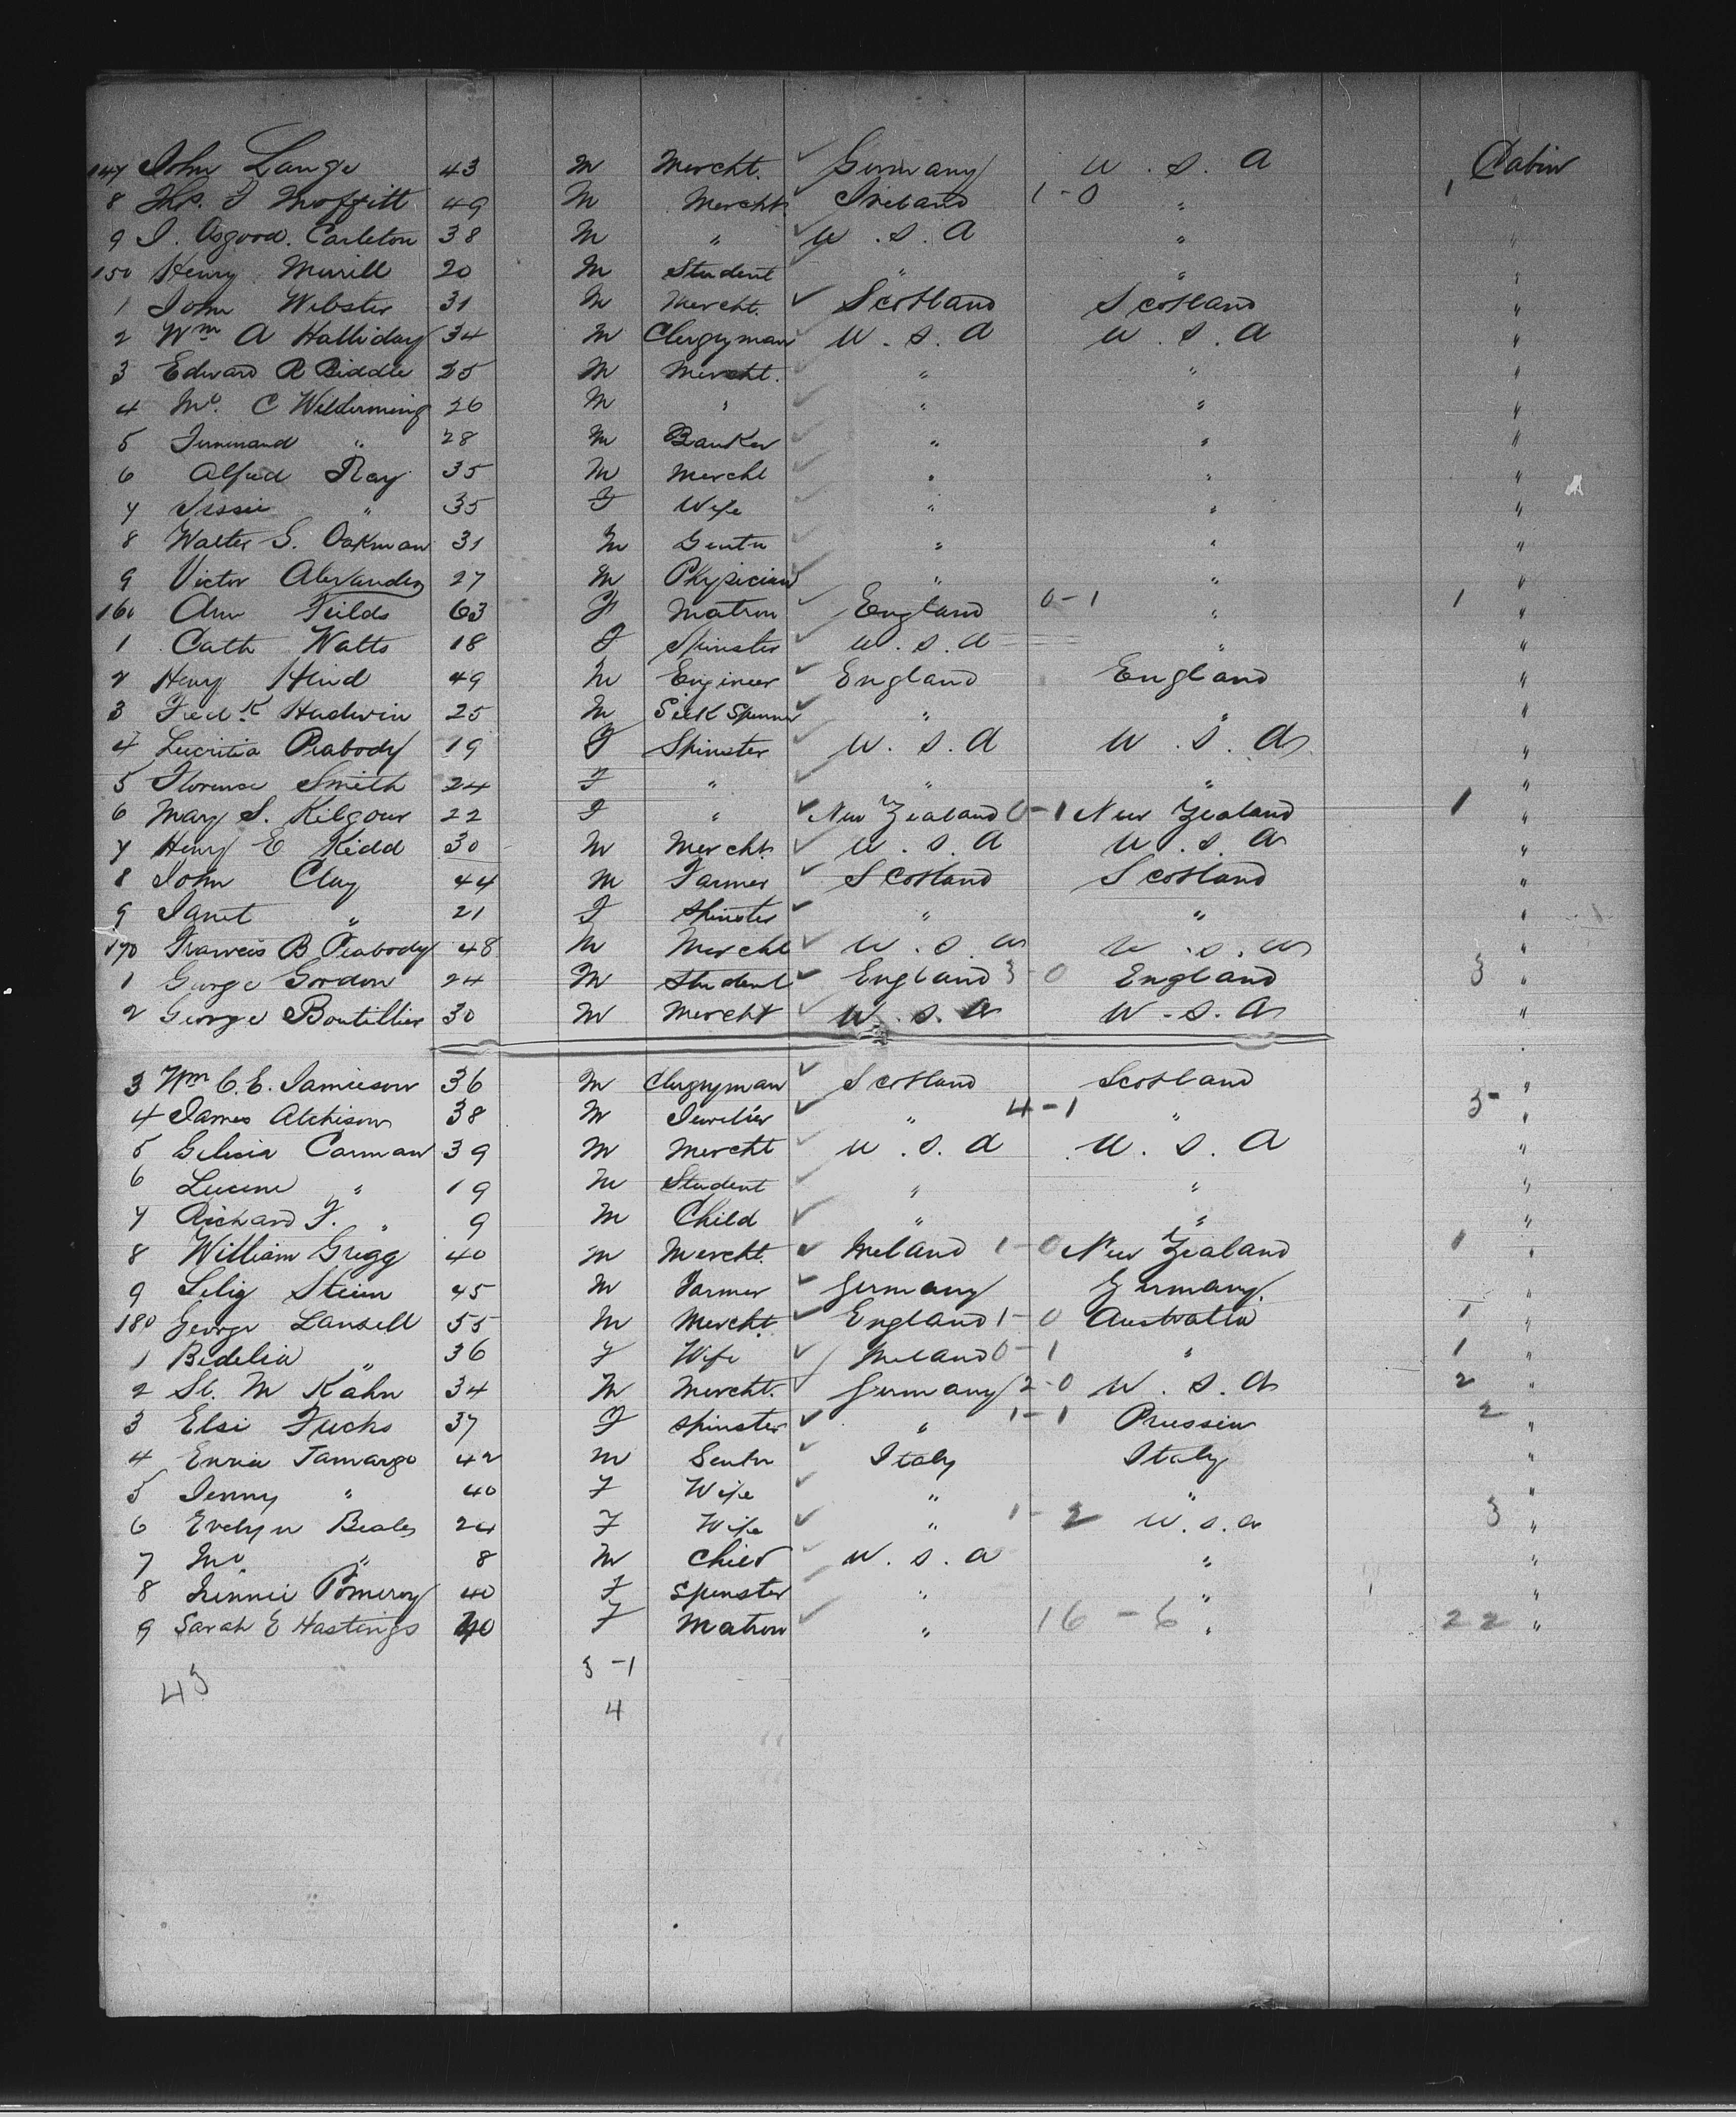 147 John Lange 43 M Mercht. Germany U. S. A Cabin
8 Ths. J Moffitt 49 M Mercht Ireland 1-0 " 1 "
9 J. Osgood. Carleton 38 M " U. S. A " "
150 Henry Merrill 20 M Student " " "
1 John Webster 31 M Mercht. Scotland Scotland "
2 Wm A Halliday 34 M Clergyman U. S. A U. S. A "
3 Edward R Biddle 25 M Mercht. " " "
4 C 26 M " " " "
5 " 28 M Banker " " "
6 Alfred Ray 35 M Mercht " " "
7 Jessie " 35 F Wife " " "
8 Walter G. Oakman 31 M Gentn " " "
9 Victor Alexander 27 M Physician " " "
160 Ann Feilds 63 F Matron England 0-1 " 1 "
1 Cath Watts 18 F Spinster U. S. A = = " "
2 Henry Hind 49 M Engineer England England "
3 Fredk Hadwin 25 M Silk Spinner " " "
4 Lucritia Peabody 19 F Spinster U. S. A U. S. A "
5 Florence Smith 24 F " " " "
6 Mary S. Kilgour 22 F " New Zealand 0-1 New Zealand 1 "
7 Henry E Kidd 30 M Mercht. U. S. A U. S. A "
8 John Clay 44 M Farmer Scotland Scotland "
9 Janet " 21 F Spinster " " "
170 Francis B Peabody 48 M Mercht U. S. A U. S. A "
1 George Gordon 24 M Student England 3-0 England 3 "
2 George Boutillier 30 M Mercht U. S. A U. S. A "
3 Wm C. E. Jamieson 36 M Clergyman Scotland Scotland "
4 James Atchison 38 M Jeweller " 4-1 " 5 "
5 Carman 39 M Mercht U. S. A U. S. A "
6 " 19 M Student " " "
7 Richard F. " 9 M Child " " "
8 William Gregg 40 M Mercht. Ireland 1-0 New Zealand 1 "
9 Selig Stein 45 M Farmer Germany Germany. "
180 George Lansell 55 M Mercht. England 1-0 Australia 1 "
1 Bedelia " 36 F Wife Ireland 0-1 " 1 "
2 Sl. M Kahn 34 M Mercht. Germany 2-0 U. S. A 2 "
3 Elsi Fuchs 37 F Spinster " 1-1 Prussia 2 "
4 Tamargo 42 M Gentn Italy Italy "
5 Jenny " 40 F Wife " " "
6 Evelyn Beales 24 F Wife " 1-2 U. S. A 3 "
7 " 8 M Child U. S. A " "
8 Pomeroy 40 F Spinster " " "
9 Sarah E Hastings 40 F Matron " 16-6 " 22 "
43 3-1
4